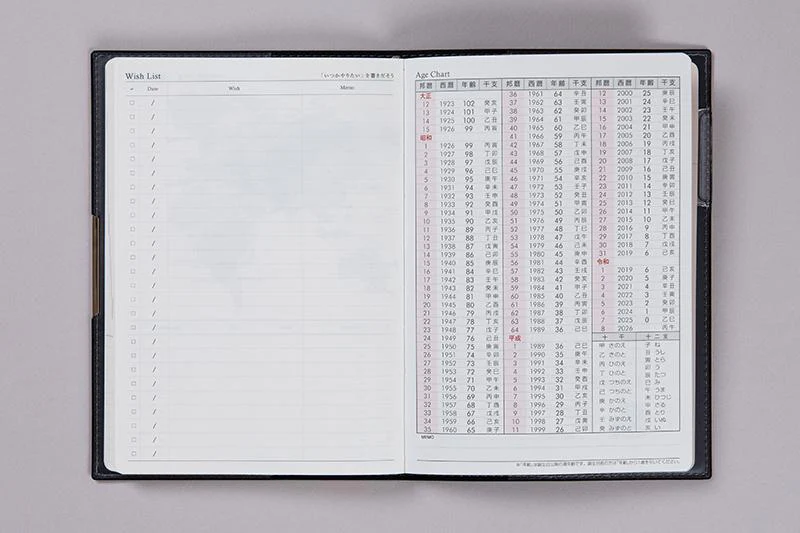 Wish List
「いつかやりたい」を書きだそう
✓ Date Wish Memo
□ /
□ /
□ /
□ /
□ /
□ /
□ /
□ /
□ /
□ /
□ /
□ /
□ /
□ /
□ /
□ /
□ /
□ /
□ /
□ /
□ /
□ /
□ /
□ /
□ /
□ /
Age Chart
邦暦 西暦 年齢 干支
大正
12 1923 102 癸亥
13 1924 101 甲子
14 1925 100 乙丑
15 1926 99 丙寅
昭和
1 1926 99 丙寅
2 1927 98 丁卯
3 1928 97 戊辰
4 1929 96 己巳
5 1930 95 庚午
6 1931 94 辛未
7 1932 93 壬申
8 1933 92 癸酉
9 1934 91 甲戌
10 1935 90 乙亥
11 1936 89 丙子
12 1937 88 丁丑
13 1938 87 戊寅
14 1939 86 己卯
15 1940 85 庚辰
16 1941 84 辛巳
17 1942 83 壬午
18 1943 82 癸未
19 1944 81 甲申
20 1945 80 乙酉
21 1946 79 丙戌
22 1947 78 丁亥
23 1948 77 戊子
24 1949 76 己丑
25 1950 75 庚寅
26 1951 74 辛卯
27 1952 73 壬辰
28 1953 72 癸巳
29 1954 71 甲午
30 1955 70 乙未
31 1956 69 丙申
32 1957 68 丁酉
33 1958 67 戊戌
34 1959 66 己亥
35 1960 65 庚子
邦暦 西暦 年齢 干支
36 1961 64 辛丑
37 1962 63 壬寅
38 1963 62 癸卯
39 1964 61 甲辰
40 1965 60 乙巳
41 1966 59 丙午
42 1967 58 丁未
43 1968 57 戊申
44 1969 56 己酉
45 1970 55 庚戌
46 1971 54 辛亥
47 1972 53 壬子
48 1973 52 癸丑
49 1974 51 甲寅
50 1975 50 乙卯
51 1976 49 丙辰
52 1977 48 丁巳
53 1978 47 戊午
54 1979 46 己未
55 1980 45 庚申
56 1981 44 辛酉
57 1982 43 壬戌
58 1983 42 癸亥
59 1984 41 甲子
60 1985 40 乙丑
61 1986 39 丙寅
62 1987 38 丁卯
63 1988 37 戊辰
64 1989 36 己巳
平成
1 1989 36 己巳
2 1990 35 庚午
3 1991 34 辛未
4 1992 33 壬申
5 1993 32 癸酉
6 1994 31 甲戌
7 1995 30 乙亥
8 1996 29 丙子
9 1997 28 丁丑
10 1998 27 戊寅
11 1999 26 己卯
邦暦 西暦 年齢 干支
12 2000 25 庚辰
13 2001 24 辛巳
14 2002 23 壬午
15 2003 22 癸未
16 2004 21 甲申
17 2005 20 乙酉
18 2006 19 丙戌
19 2007 18 丁亥
20 2008 17 戊子
21 2009 16 己丑
22 2010 15 庚寅
23 2011 14 辛卯
24 2012 13 壬辰
25 2013 12 癸巳
26 2014 11 甲午
27 2015 10 乙未
28 2016 9 丙申
29 2017 8 丁酉
30 2018 7 戊戌
31 2019 6 己亥
令和
1 2019 6 己亥
2 2020 5 庚子
3 2021 4 辛丑
4 2022 3 壬寅
5 2023 2 癸卯
6 2024 1 甲辰
7 2025 0 乙巳
8 2026 丙午
十干 十二支
甲 きのえ
乙 きのと
丙 ひのえ
丁 ひのと
戊 つちのえ
己 つちのと
庚 かのえ
辛 かのと
壬 みずのえ
癸 みずのと
子 ね
丑 うし
寅 とら
卯 う
辰 たつ
巳 み
午 うま
未 ひつじ
申 さる
酉 とり
戌 いぬ
亥 い
MEMO
※「年齢」は誕生日以降の満年齢です。誕生日前の方は「年齢」から1歳を引いてください。